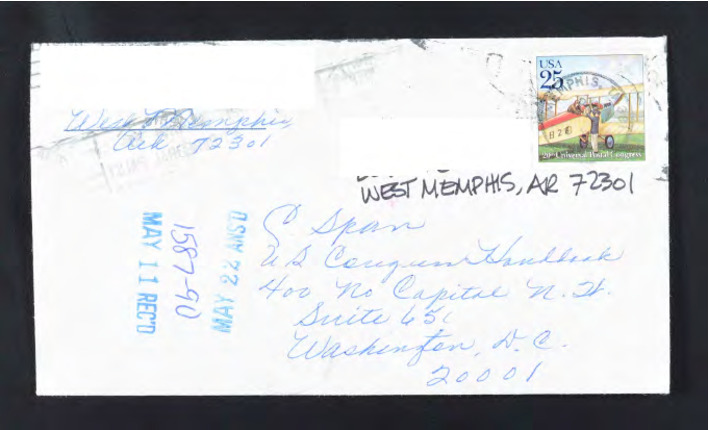 West Memphis,
Ark 72301
USA
25
MPHIS, 
20th Universal Postal Congress
WEST MEMPHIS, AR 72301
C Span
U.S. Congress Handbook
400 No Capital N. St.
Suite 650
Washington, D.C.
20001
MAY 11 REC'D
1587-90
MAY 22 ANS'D